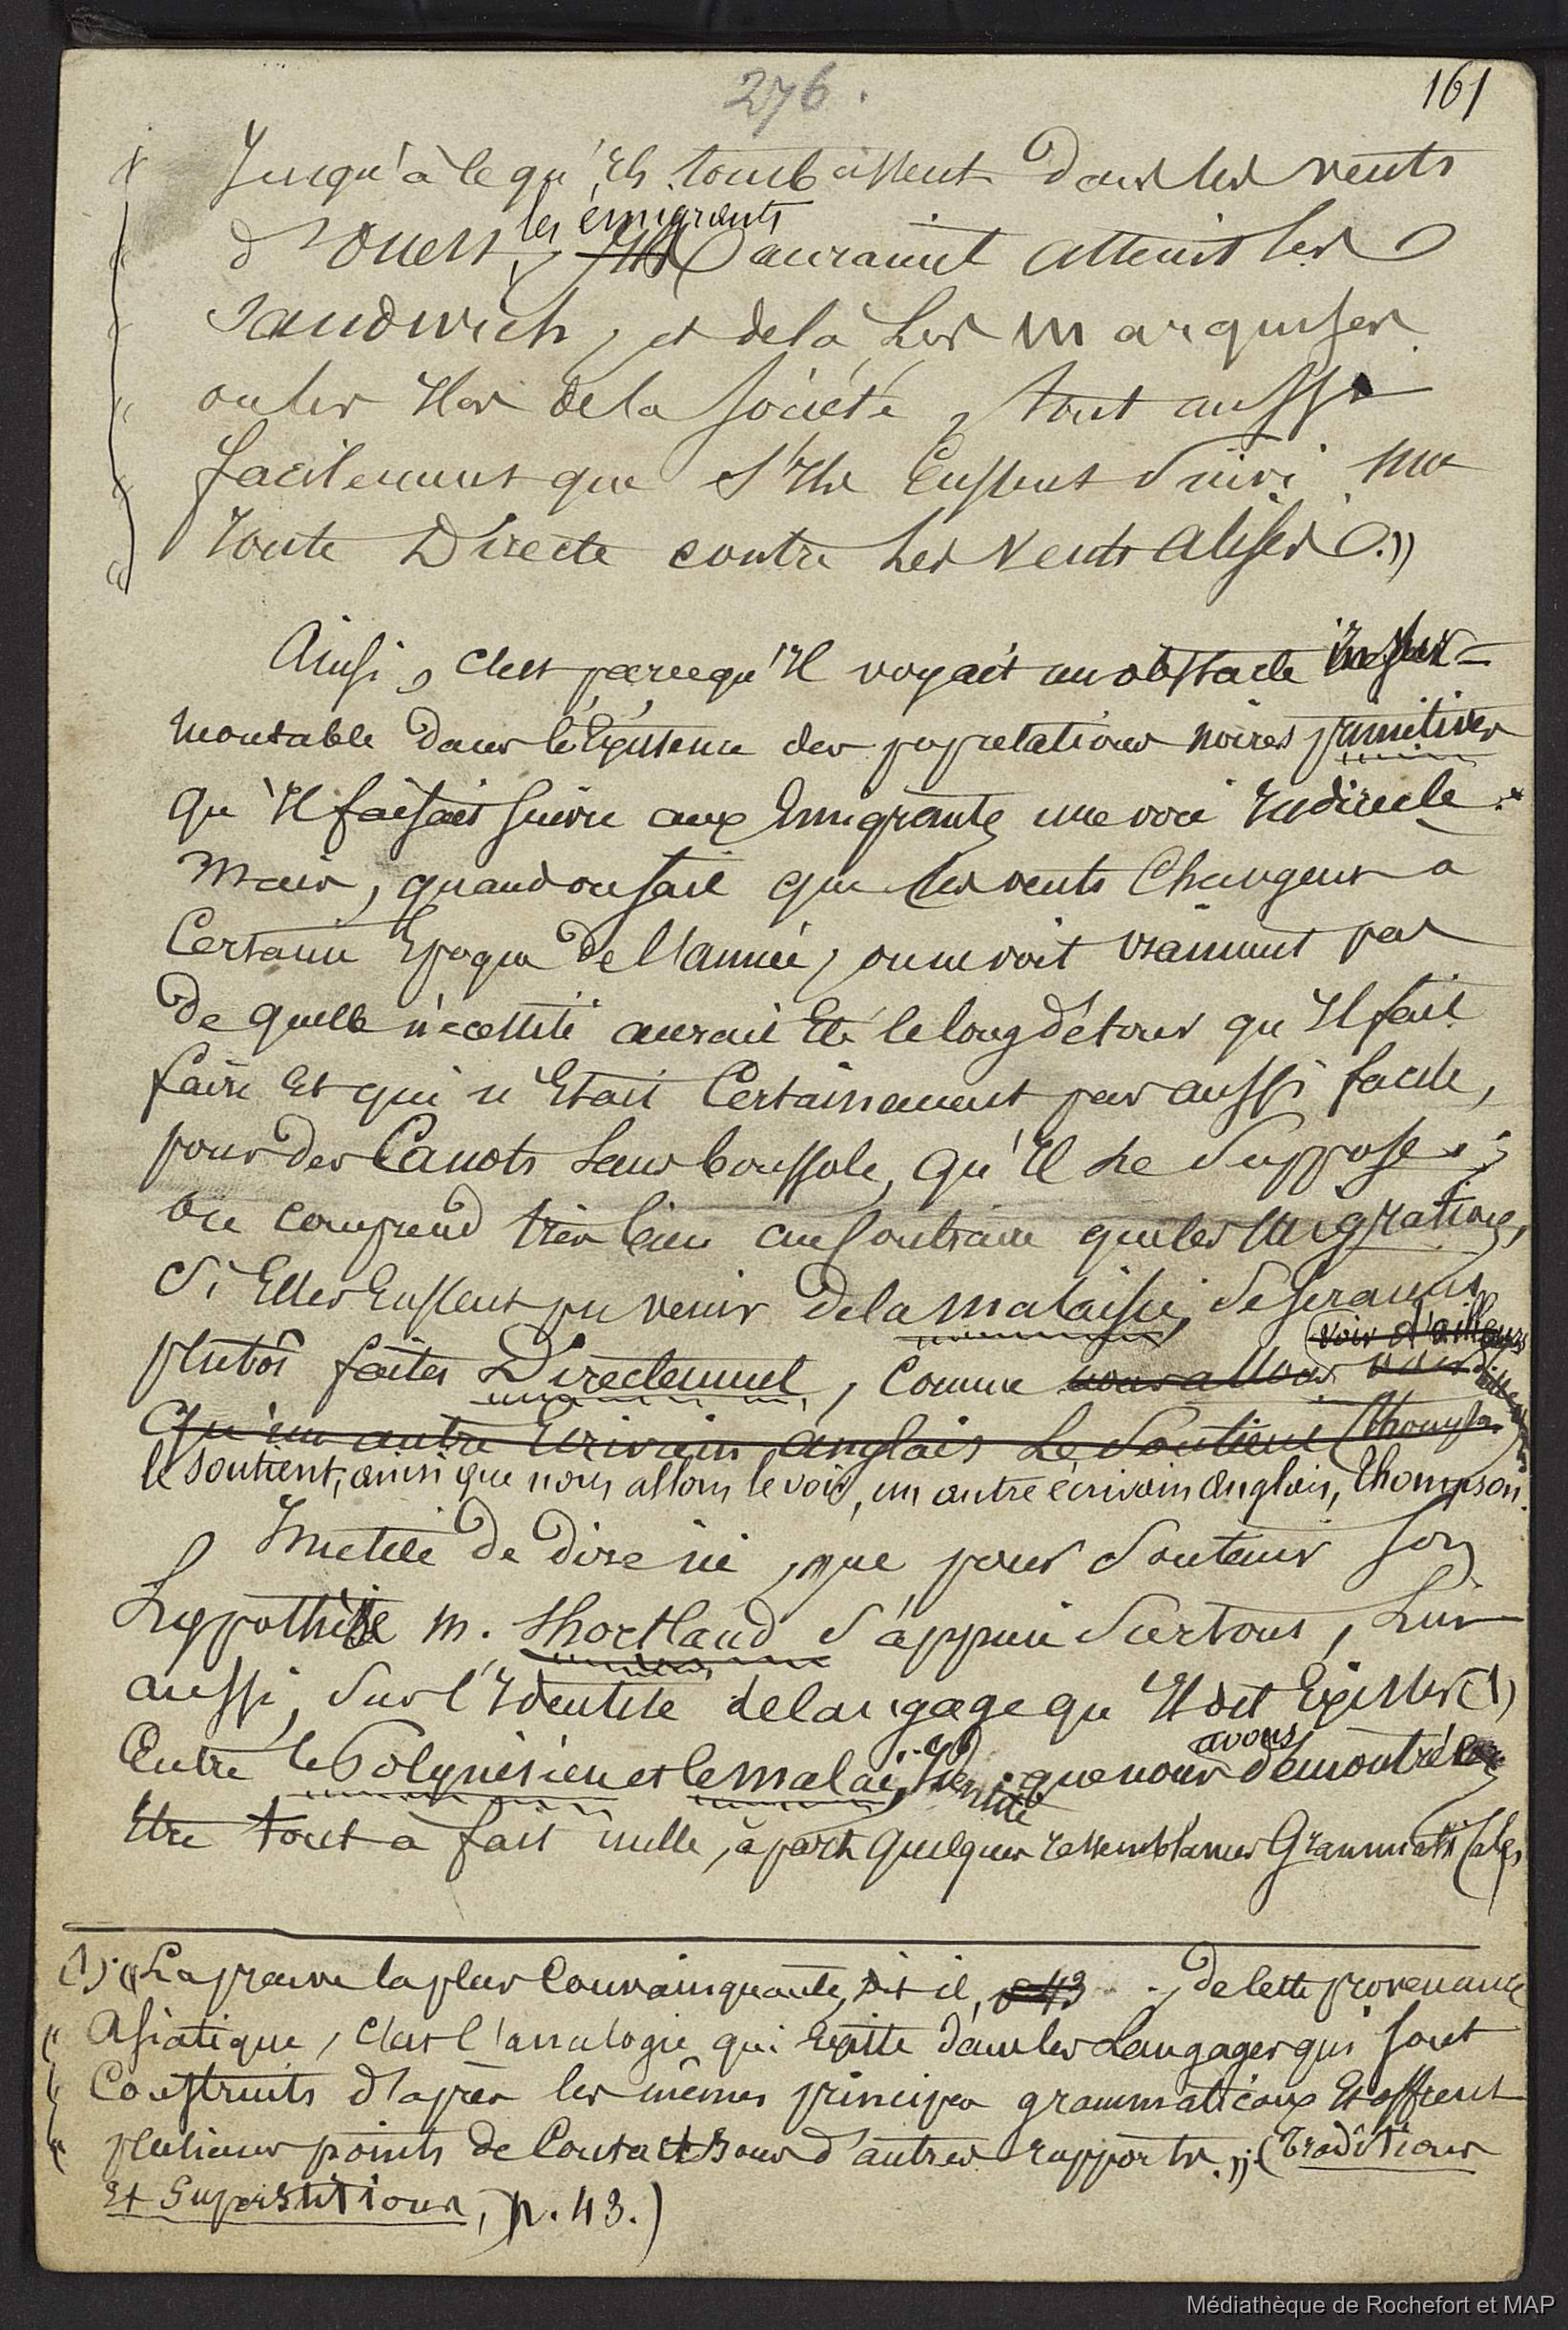 276.
161
Jusqu'à ce qu'Ils tombassent dans les vents
les émigrants
d'ouest, Ils auraient atteint les
Sandwich, et de là les marquises
ou les Iles de la Société, tout aussi
facilement que s'Ils Eussent suivi une
route Directe contre les vents alisés.»
Ainsi, c'est parcequ'Il voyait un obstacle insur-
montable dans l'Existence des populations noires primitives
qu'Il faisait suivre aux Emigrants une voie Indirecte.
Mais, quand on sait que les vents Changent à
Certaine Epoque de l'année, on ne voit vraiment pas
de quelle nécessité aurait Eté le long détour qu'Il fait
faire Et qui n'Etait Certainement pas aussi facile,
pour des Canots sans boussole, qu'Il le Suppose;
on comprend très bien au Contraire que les Migrations,
Si Elles Eussent pu venir de la malaisie, se seraient
(voir d'ailleurs
plutôt faites Directement, Comme nous allons voir
qu'un autre Ecrivain anglais le Soutient (Thompson
le soutient, ainsi que nous allons le voir, un autre écrivain anglais, Thompson.
Inutile de dire ici, que pour Soutenir son
hypothèse M. Shortland s'appuie Surtout, Lui
aussi, Sur l'Identité de langage qu'Il dit Exister (1)
avons
Entre le Polynésien et le malai, Identité que nous démontré
Etre tout à fait nulle, à part quelques ressemblances Grammaticales
(1). « La preuve la plus Convainquante, dit-il, p 43 . , de cette provenance
« Asiatique, c'est l'analogie qui Existe dans les Langages qui sont
« Construits d'après les mêmes principes grammaticaux Et offrent
« plusieurs points de Contact sous d'autres rapports.»; (Traditions
Et Superstitions, p. 43.)
Médiathèque de Rochefort et MAP